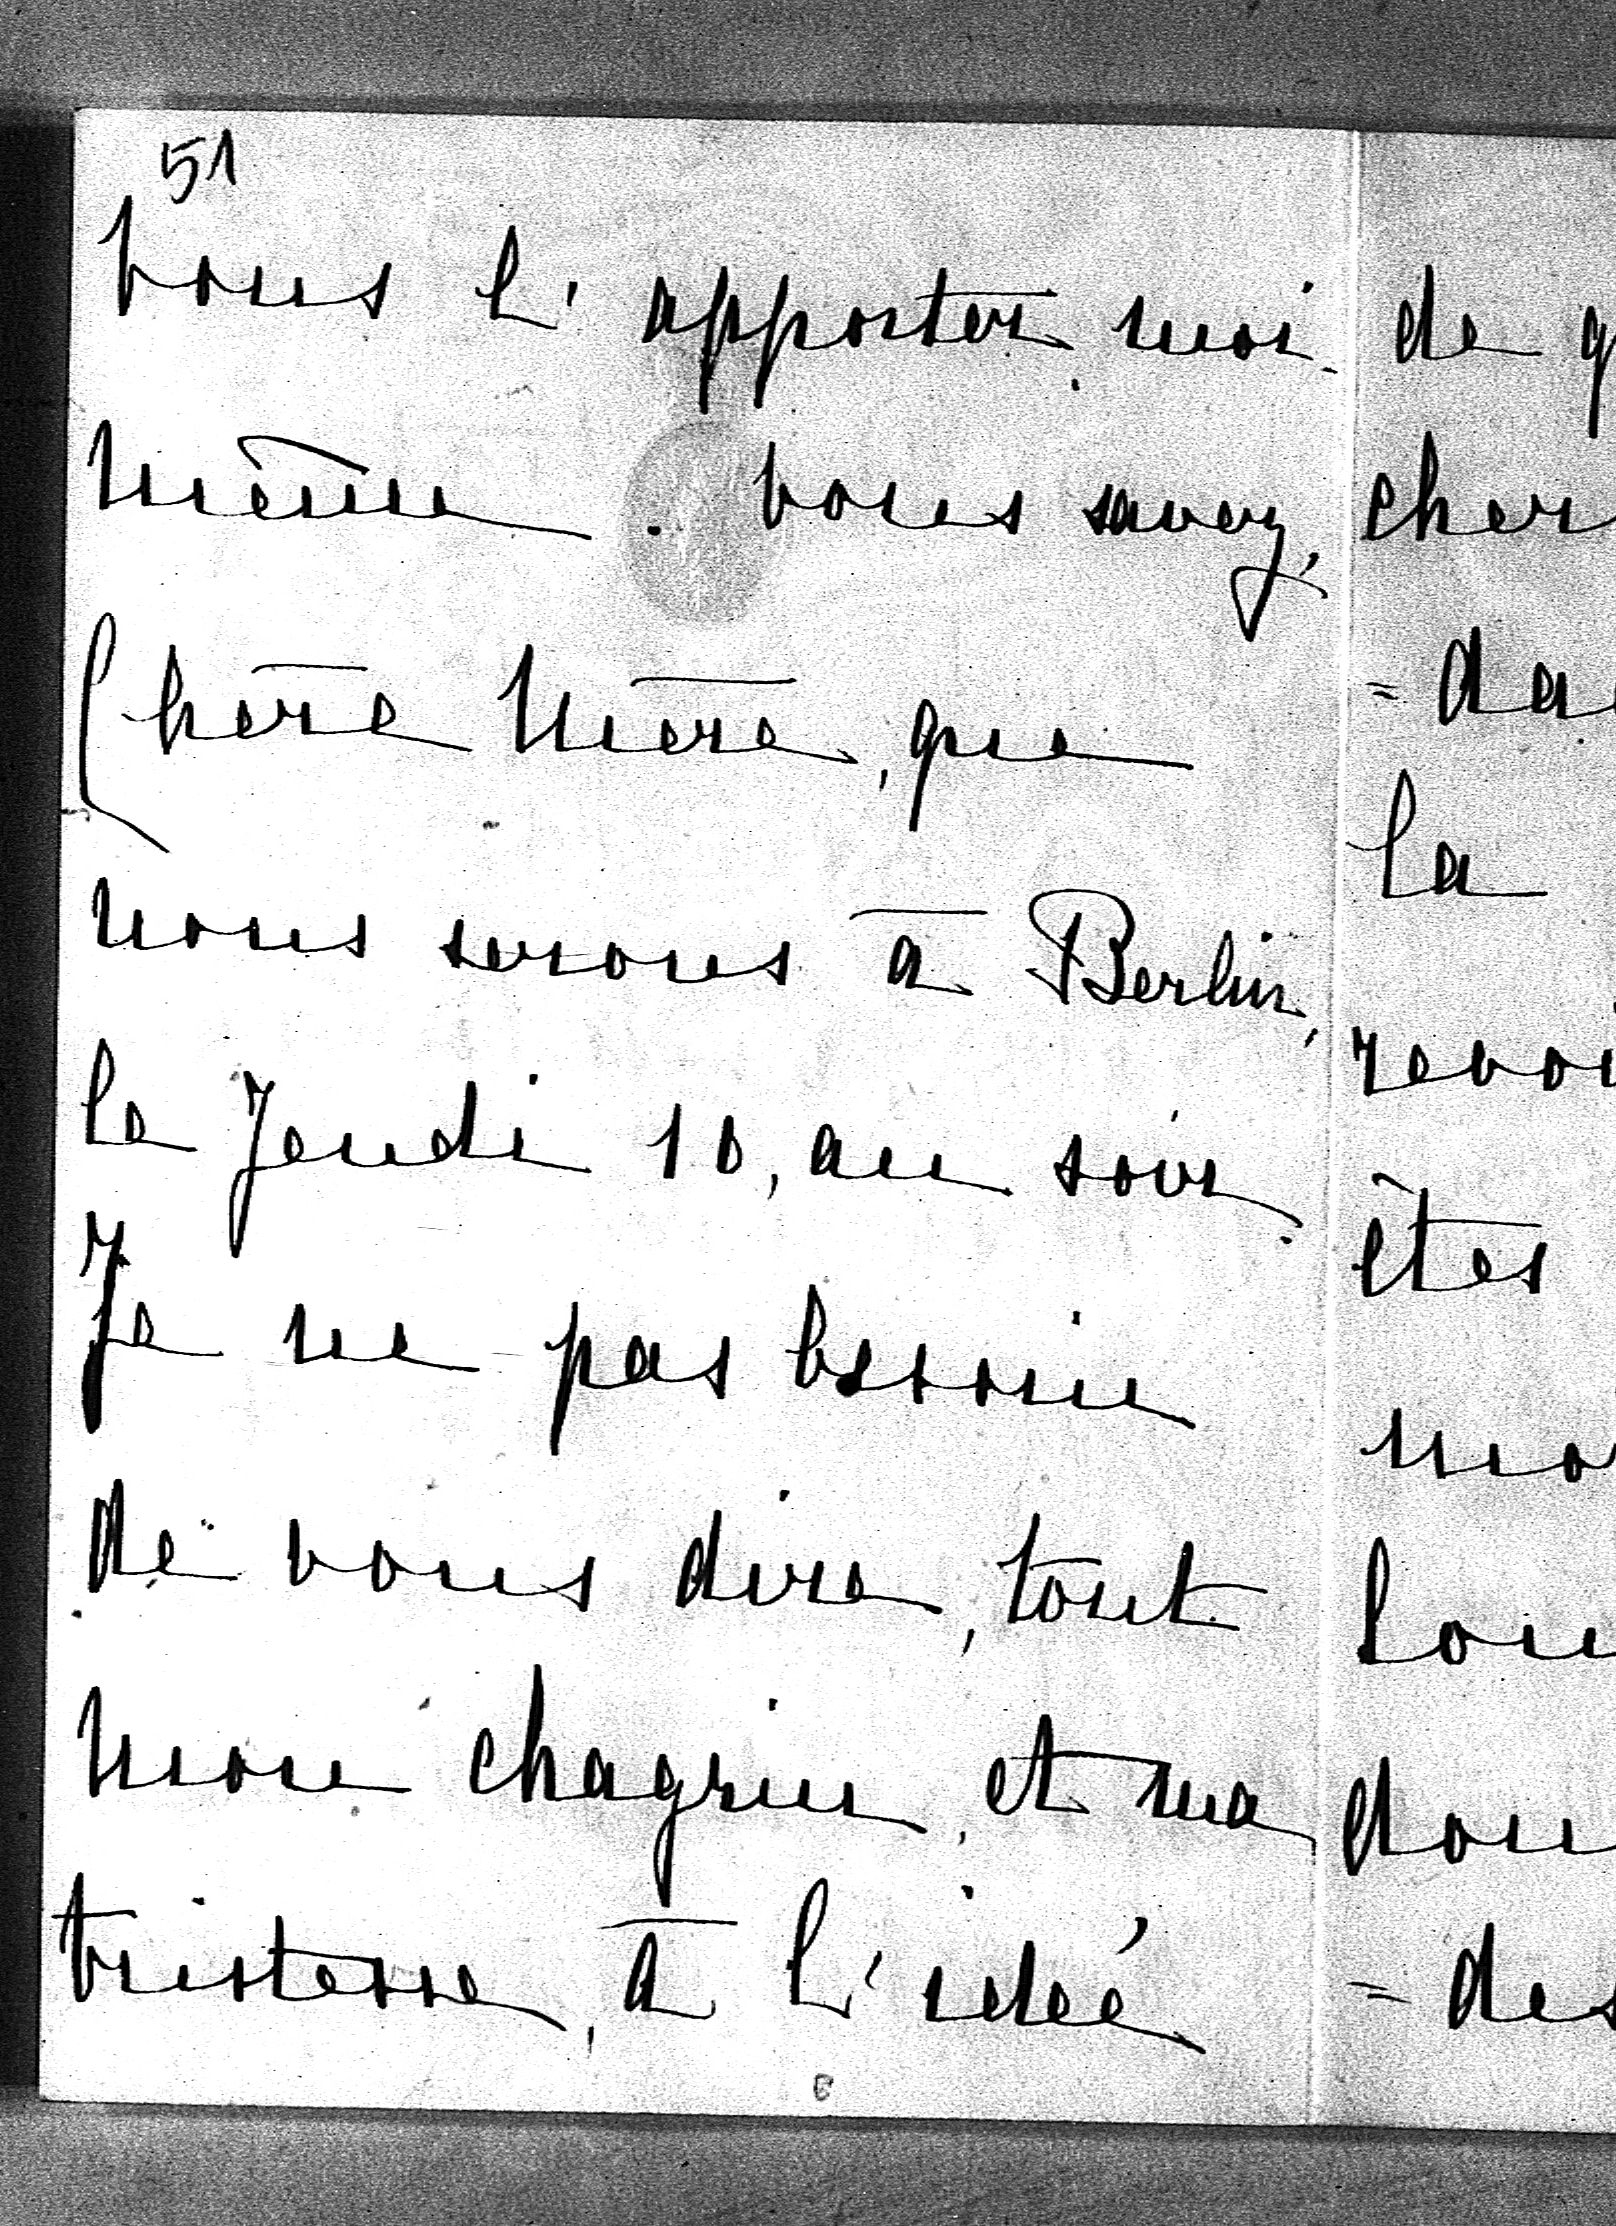 51
vous l'apporter moi-
même. Vous savez,
Chère Mère, que
nous serons à Berlin,
le Jeudi 10, au soir.
Je ne pas besoin
de vous dire, tout
mon chagrin, et ma
tristesse, à l'idée
de
cher
= da
la
revoi
êtes
mo
lou
dou
= des